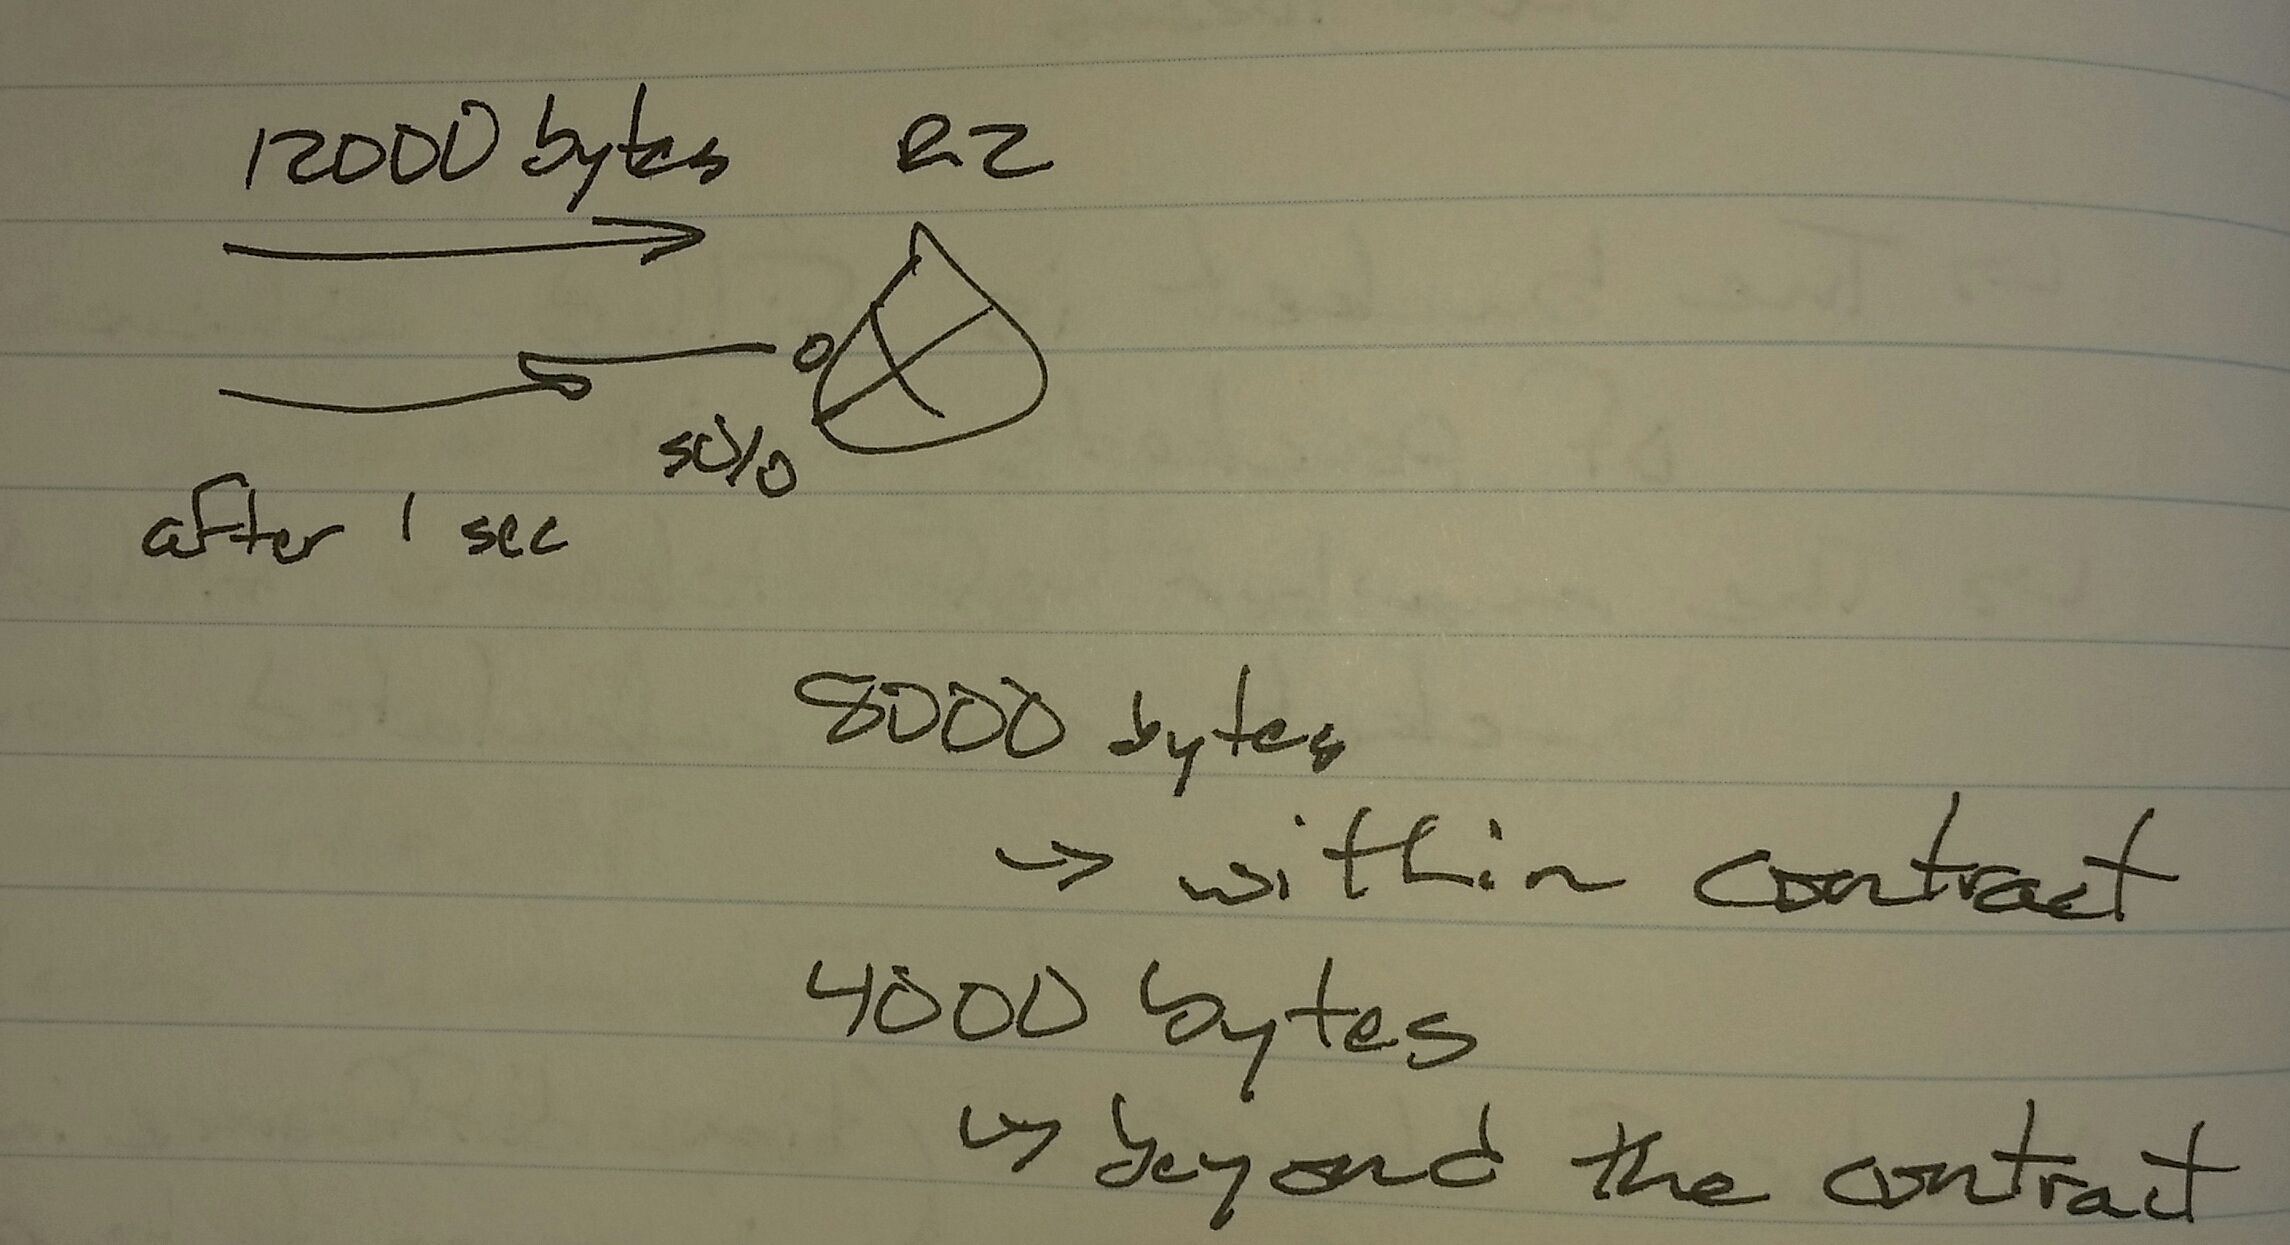 12000 bytes R2
50%
after 1 sec
8000 bytes
↳ within contract
4000 bytes
↳ beyond the contract